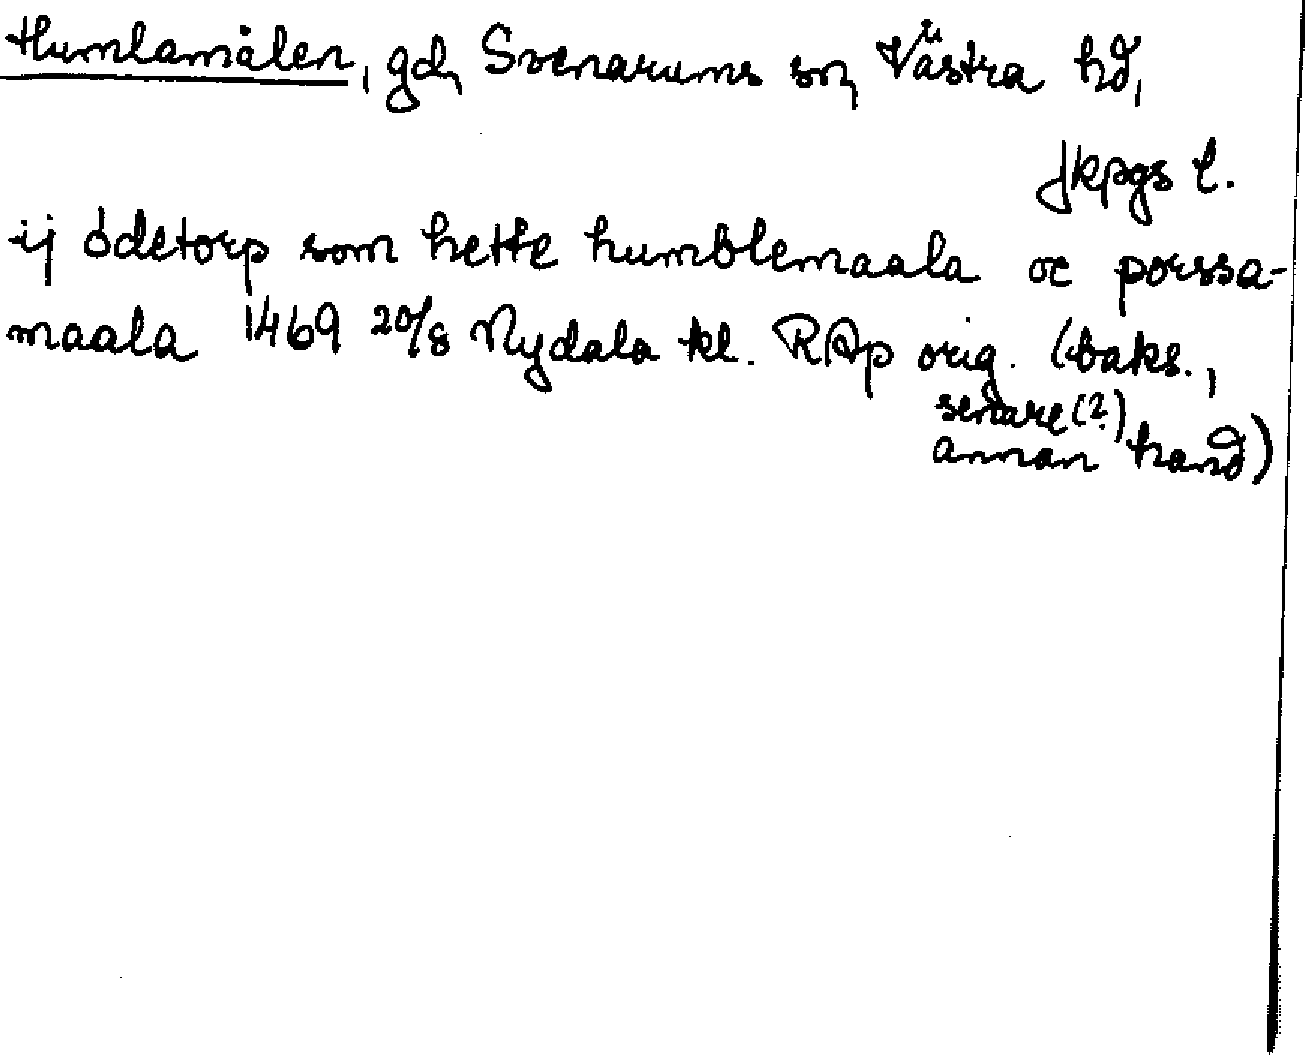 Humlamålen, gd, Svenarums sn, Västra hd,
Jkpgs l.
ij ödetorp som hette humblemaala oc porssa-
maala 1469 20/8 Nydala kl. RAp orig. (baks.,
senare (?)
annan hand)